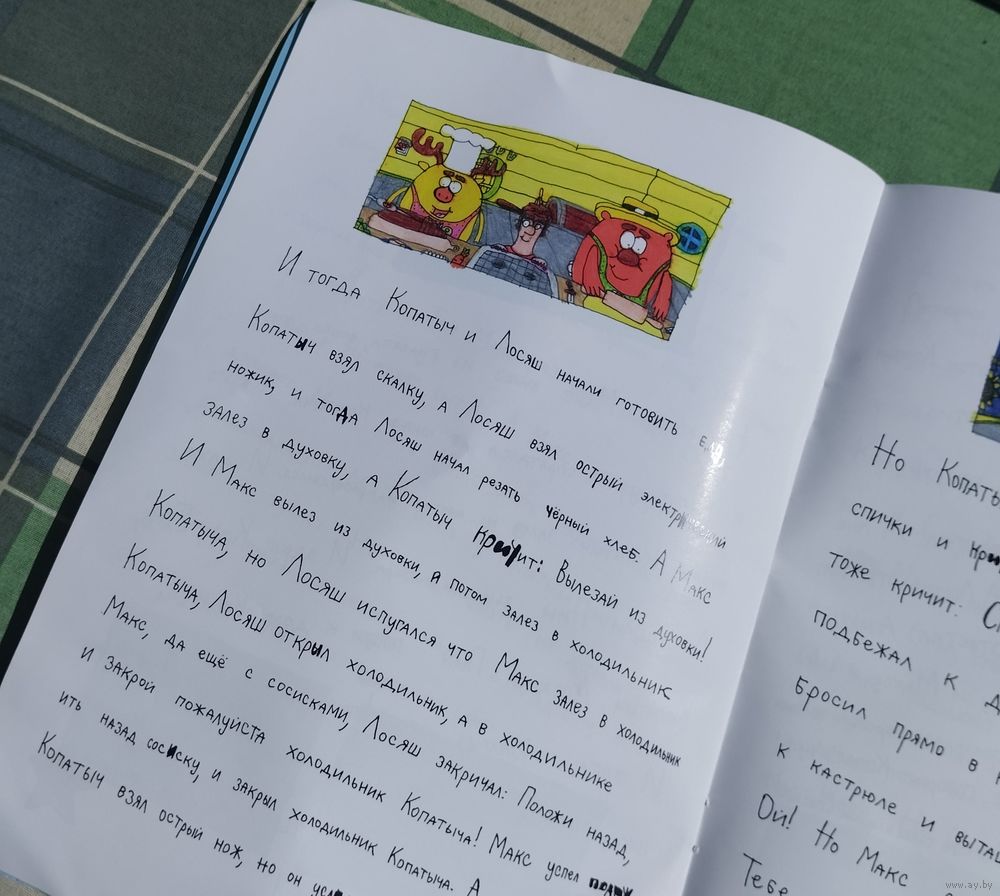 И тогда Копатыч и Лосяш начали готовить еду
Копатыч взял скалку, а Лосяш взял острый электрический
ножик, и тогда Лосяш начал резать чёрный хлеб. А Макс
залез в духовку, а Копатыч кричит: Вылезай из духовки!
И Макс вылез из духовки, а потом залез в холодильник
Копатыча, но Лосяш испугался что Макс залез в холодильник
Копатыча, Лосяш открыл холодильник, а в холодильнике
Макс, да ещё с сосисками, Лосяш закричал: Положи назад,
и закрой пожалуйста холодильник Копатыча! Макс успел
ить назад сосиску, и закрыл холодильник Копатыча. А
Копатыч взял острый нож, но он
Но
спички и
тоже кричит:
подбежал к
Бросил прямо в
к кастрюле и
Ой! Но Макс
Тебе
www.ay.by